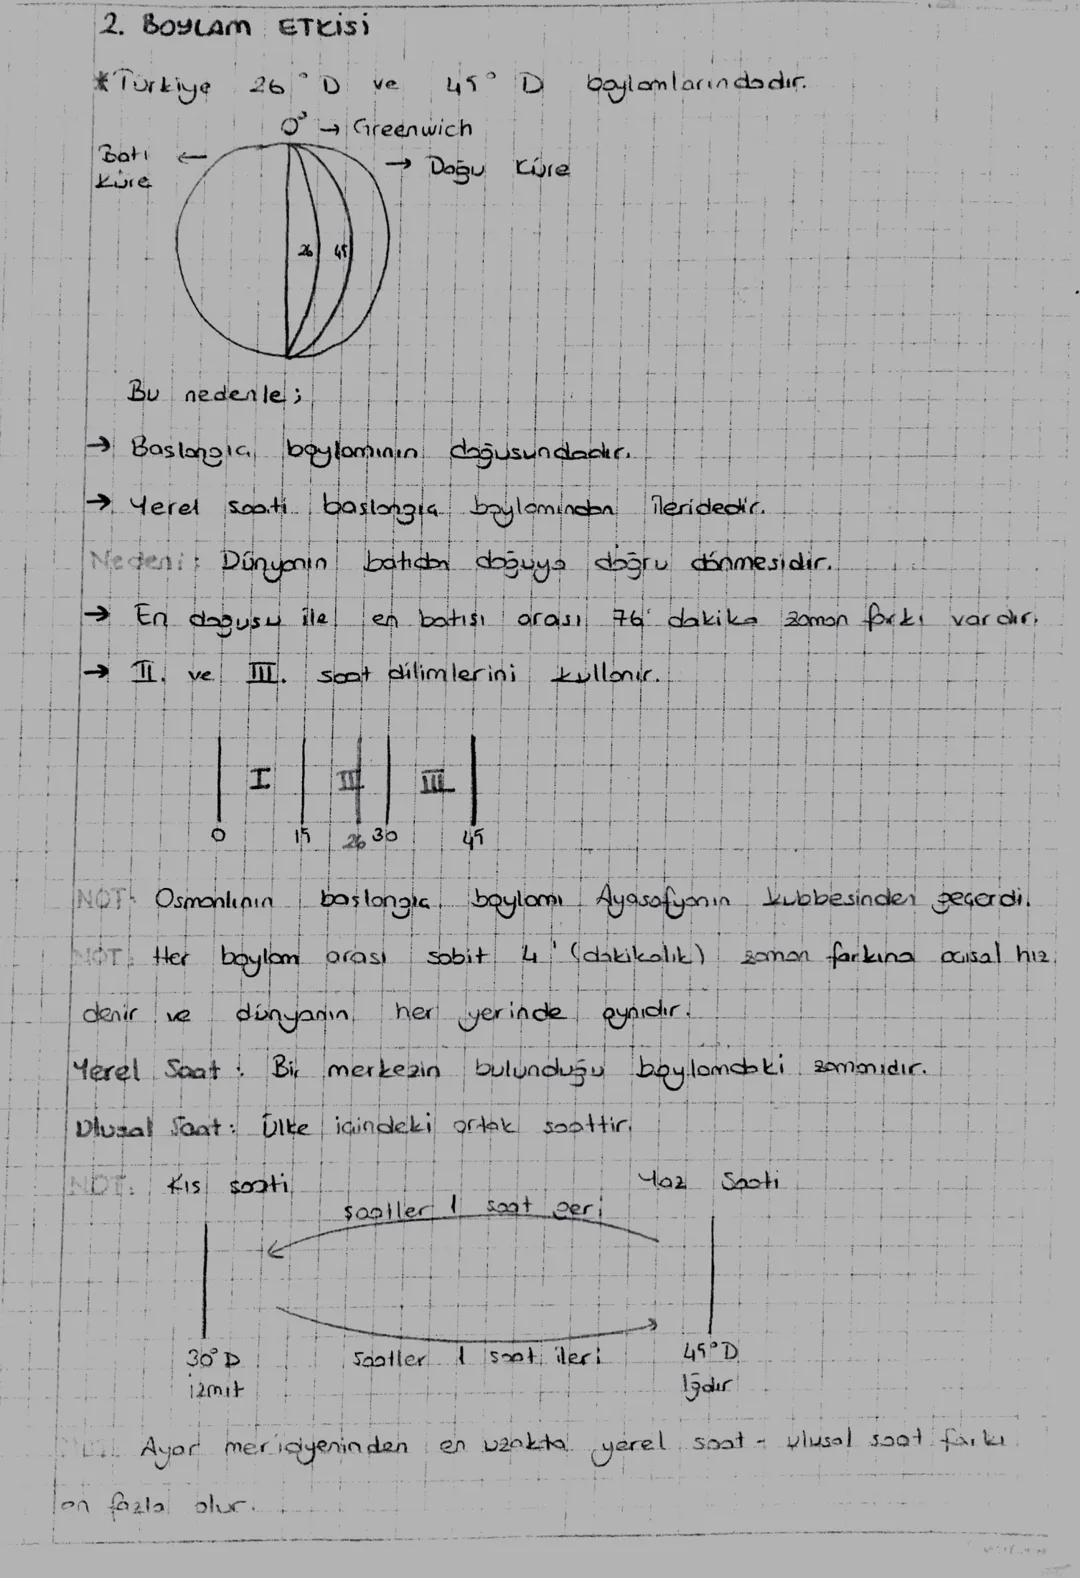 2. BOYLAM ETKİSİ
*Türkiye 26° D ve 45° D boylamlarındadır.
0° → Greenwich
Batı Küre ←
→ Doğu Küre
26 45
Bu nedenle;
→ Baslangıç boylamının doğusundadır.
→ Yerel saati baslangıç boylamından ileridedir.
Nedeni: Dünyanın batıdan doğuya doğru dönmesidir.
→ En doğusu ile en batısı arası 76' dakika zaman farkı vardır.
→ II. ve III. saat dilimlerini kullanır.
I II III
0 15 26 30 45
NOT: Osmanlının baslangıç boylamı Ayasofyanın kubbesinden geçerdi.
NOT: Her boylam arası sabit 4' (dakikalık) zaman farkına açısal hız
denir ve dünyanın her yerinde aynıdır.
Yerel Saat: Bir merkezin bulunduğu boylamdaki zamanıdır.
Ulusal Saat: Ülke içindeki ortak saattir.
NOT: Kıs saati Yaz Saati
saatler 1 saat geri
Saatler 1 saat ileri
30° D 45° D
izmit Iğdır
NOT: Ayar meridyeninden en uzakta yerel saat - ulusal saat farkı
en fazla olur.